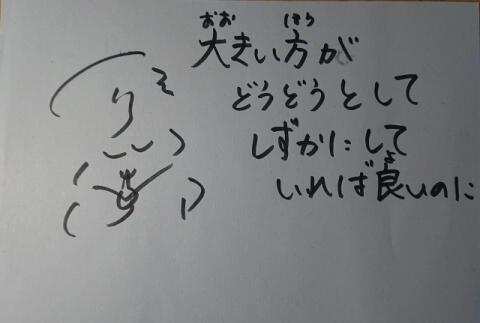 大きい方が
どうどうとして
しずかにして
いれば良いのに